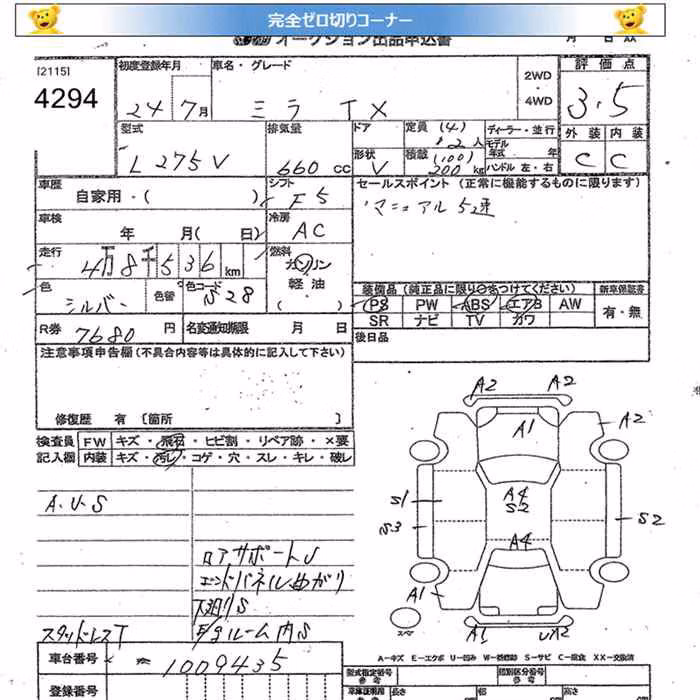 完全ゼロ切りコーナー
オークション出品申込書
[2115]
4294
初度登録年月
24 7月
車名・グレード
ミラ TX
2WD
・
4WD
評価点
3.5
外装 内装
C C
型式
L275V
排気量
660 cc
ドア
形状
V
定員 (4)
2人
積載 (100)
200 kg
ディーラー・並行
モデル年式 年
ハンドル 左・右
車歴
自家用・( )
シフト
F5
セールスポイント (正常に機能するものに限ります)
マニュアル5速
車検
年 月( 日)
冷房
AC
走行
4万8千536km
燃料
ガソリン
軽油
色
シルバー
色替
色コード
S28
装備品 (純正品に限り○をつけてください)
新車保証書
PS PW ABS エアB AW
SR ナビ TV カワ
有・無
R券 7680 円
名変通知期限 月 日
後日品
注意事項申告欄(不具合内容等は具体的に記入して下さい)
修復歴 有 [箇所 ]
検査員 FW キズ・飛石・ヒビ割・リペア跡・×要
記入欄 内装 キズ・汚レ・コゲ・穴・スレ・キレ・破レ
A2 A2
A2
A1
A4
S2
S1
S3
S2
A4
A1
A1 UA2
スペア
A.U.S
ロアサポートU
エンドパネル曲がり
下廻りS
ルーム内S
スタッドレスT
A−キズ E−エクボ U−凹み W−板修跡 S−サビ C−腐食 XX−交換済
車台番号
1009435
型式指定番号
類別区分番号
登録番号
長さ
幅
高さ